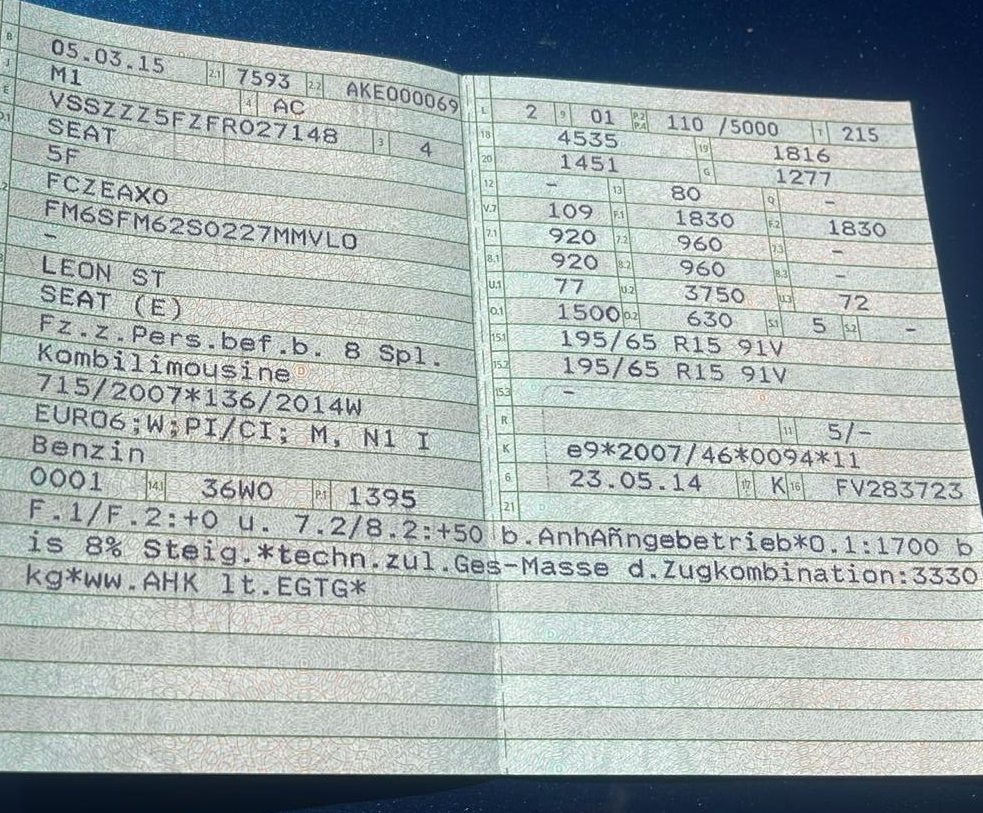 B 05.03.15 2.1 7593 2.2 AKE000069
J M1 4 AC
E VSSZZZ5FZFR027148 3 4
D.1 SEAT
5F
FCZEAX0
FM6SFM62S0227MMVL0
-
LEON ST
SEAT (E)
Fz.z.Pers.bef.b. 8 Spl.
Kombilimousine
715/2007*136/2014W
EURO6;W;PI/CI; M, N1 I
Benzin
0001 14.1 36W0 P.1 1395
L 2 9 01 P.2 P.4 110 /5000 T 215
18 4535 19 1816
20 1451 G 1277
12 - 13 80 Q -
V.7 109 F.1 1830 F.2 1830
7.1 920 7.2 960 7.3 -
8.1 920 8.2 960 8.3 -
U.1 77 U.2 3750 U.3 72
O.1 1500 O.2 630 S.1 5 S.2 -
15.1 195/65 R15 91V
15.2 195/65 R15 91V
15.3 -
R 11 5/-
K e9*2007/46*0094*11
6 23.05.14 17 K 16 FV283723
21
F.1/F.2:+0 u. 7.2/8.2:+50 b.AnhAñngebetrieb*O.1:1700 b
is 8% Steig.*techn.zul.Ges-Masse d.Zugkombination:3330
kg*ww.AHK lt.EGTG*